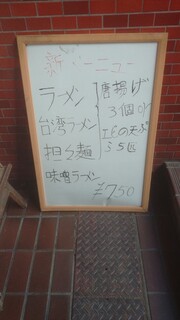 新メニュー
ラーメン
台湾ラーメン
担々麺
味噌ラーメン
唐揚げ
3個 or
エビの天ぷら
3匹
¥750